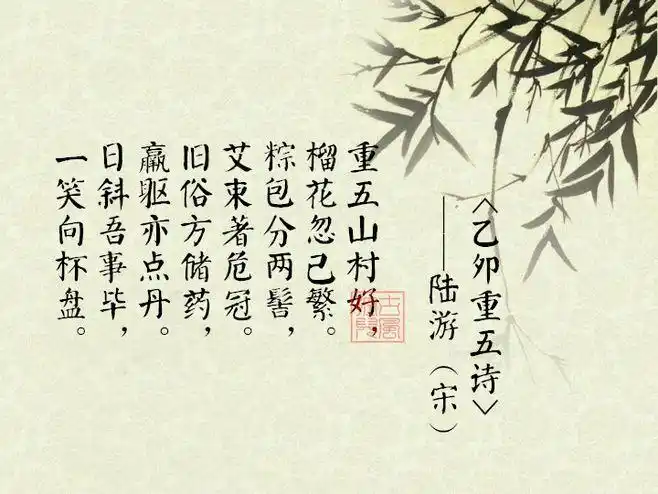 《乙卯重五诗》
——陆游（宋）
重五山村好，
榴花忽已繁。
粽包分两髻，
艾束著危冠。
旧俗方储药，
羸躯亦点丹。
日斜吾事毕，
一笑向杯盘。